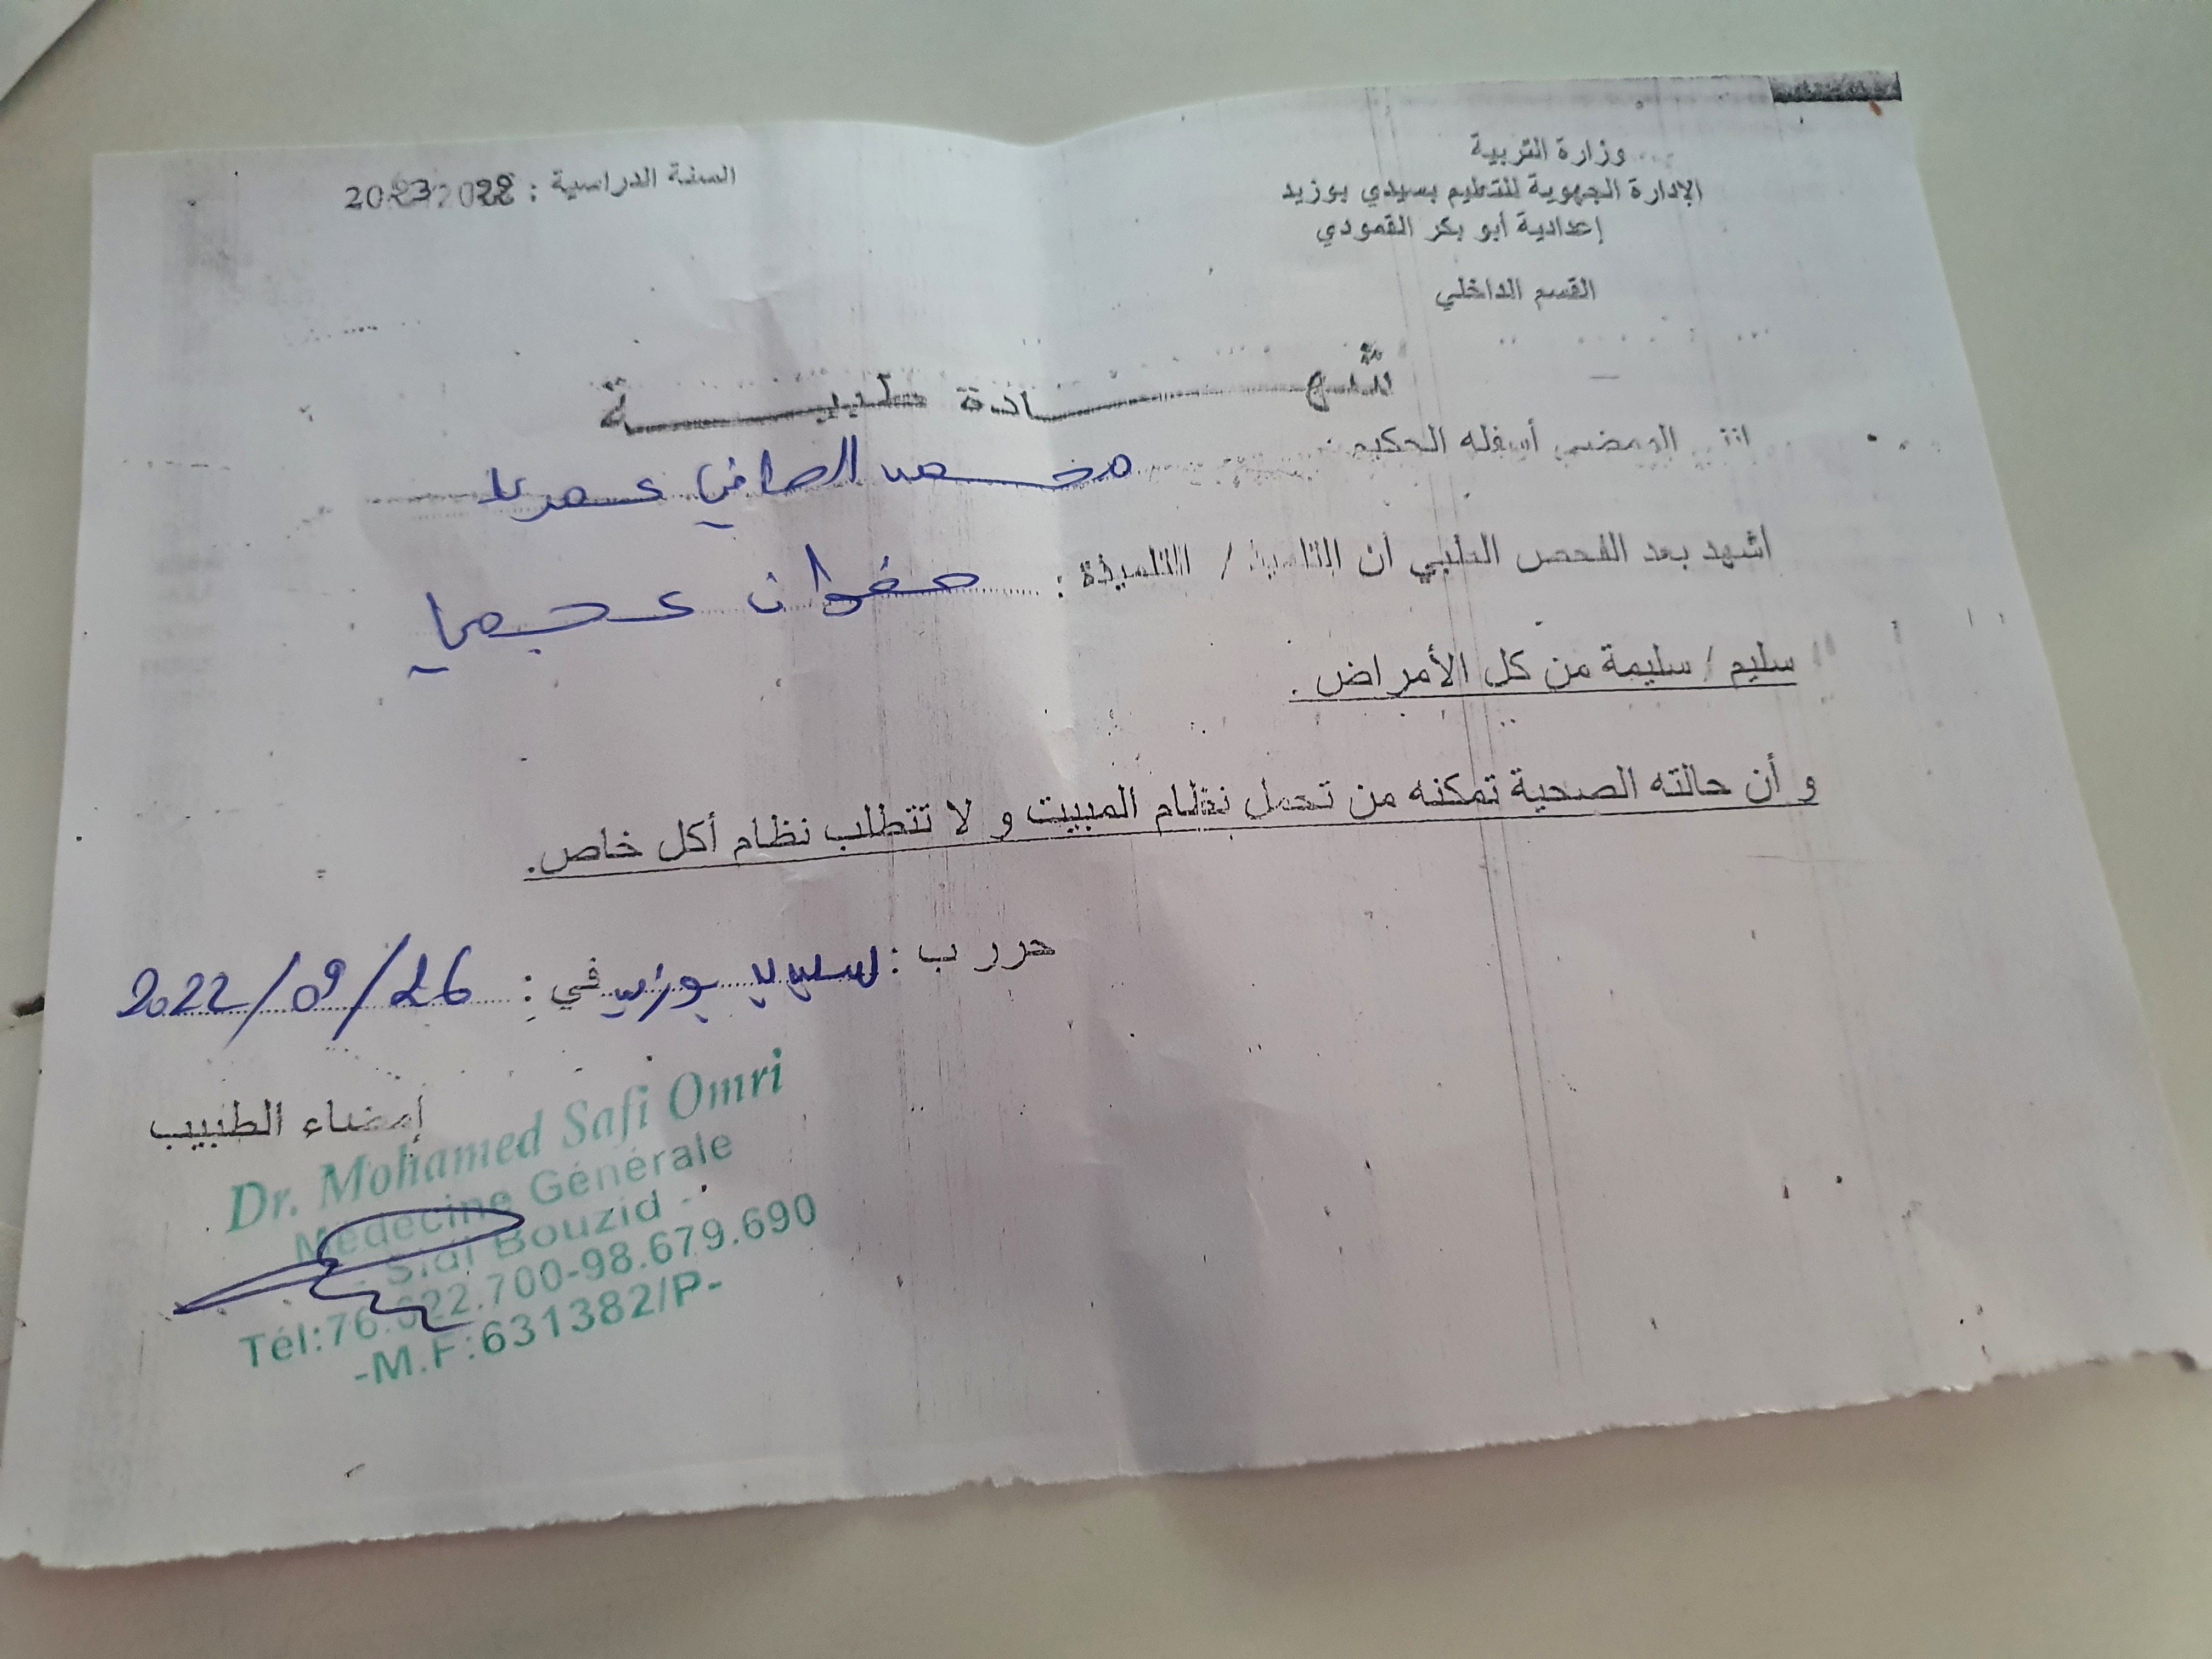 وزارة التربية
الإدارة الجهوية للتعليم بسيدي بوزيد
إعدادية أبو بكر القمودي
القسم الداخلي
السنة الدراسية :
شهـــــادة طبيـــــة
اني الممضي أسفله الحكيم : محمد الصافي عمري
اشهد بعد الفحص الطبي أن التلميذ / التلميذة : صفوان عجمي
سليم / سليمة من كل الأمراض .
و أن حالته الصحية تمكنه من تحمل نظام المبيت و لا تتطلب نظام أكل خاص.
حرر ب : سيدي بوزيد في : 2022/09/26
إمضاء الطبيب
Dr. Mohamed Safi Omri
Médecine Générale
- Sidi Bouzid -
Tél:76.622.700-98.679.690
-M.F:631382/P-